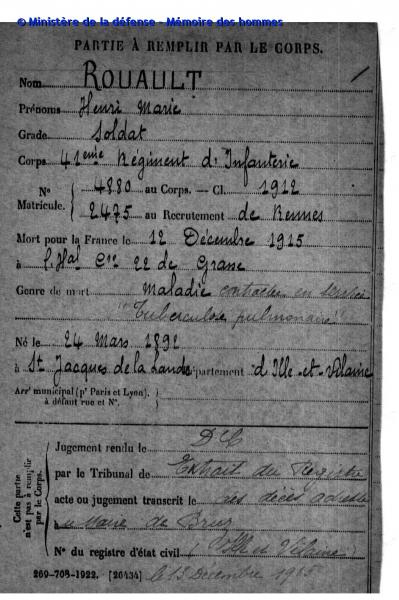 © Ministère de la défense - Mémoire des hommes
PARTIE À REMPLIR PAR LE CORPS.
Nom ROUAULT
Prénoms Henri Marie
Grade Soldat
Corps 41eme Régiment d'Infanterie
N° Matricule. 4880 au Corps. — Cl. 1912
2475 au Recrutement de Rennes
Mort pour la France le 12 Décembre 1915
à l'Hal Cre 22 de
Genre de mort Maladie contractée en service
"Tuberculose pulmonaire"
Né le 24 Mars 1892
à St Jacques de la Lande Département d'Ille-et-Vilaine
Arrt municipal (pr Paris et Lyon),
à défaut rue et N°.
Cette partie n'est pas à remplir par le Corps.
Jugement rendu le
par le Tribunal de Extrait du Registre
acte ou jugement transcrit le des décès adressé
Maire de Bruz
N° du registre d'état civil Ille et Vilaine
269-708-1922. [26434] le 13 Décembre 1915